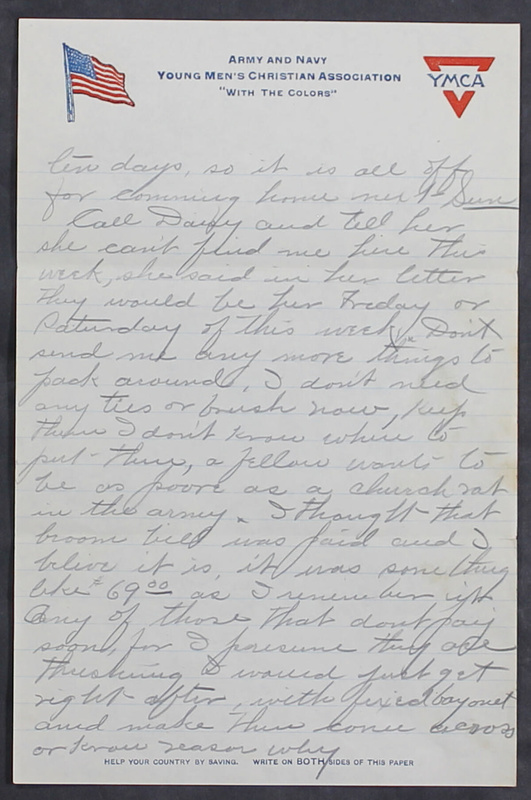 ARMY AND NAVY
YOUNG MEN'S CHRISTIAN ASSOCIATION
"WITH THE COLORS"
YMCA
ten days, so it is all off
for comming home next Sun
Call Daisy and tell her
she can't find me here this
week, she said in her letter
they would be her Friday or
Saturday of this week. Don't
send me any more things to
pack around, I don't need
any ties or brush now, keep
them I don't know where to
put them, a fellow wants to
be as poore as a church rat
in the army. I thought that
broom bill was paid and I
belive it is, it was something
like $69.00 as I remember it
any of those that dont pay
soon, for I presume they are
threshing I would just get
right after, with fixed bayonet
and make them come across
or know reason why
HELP YOUR COUNTRY BY SAVING. WRITE ON BOTH SIDES OF THIS PAPER